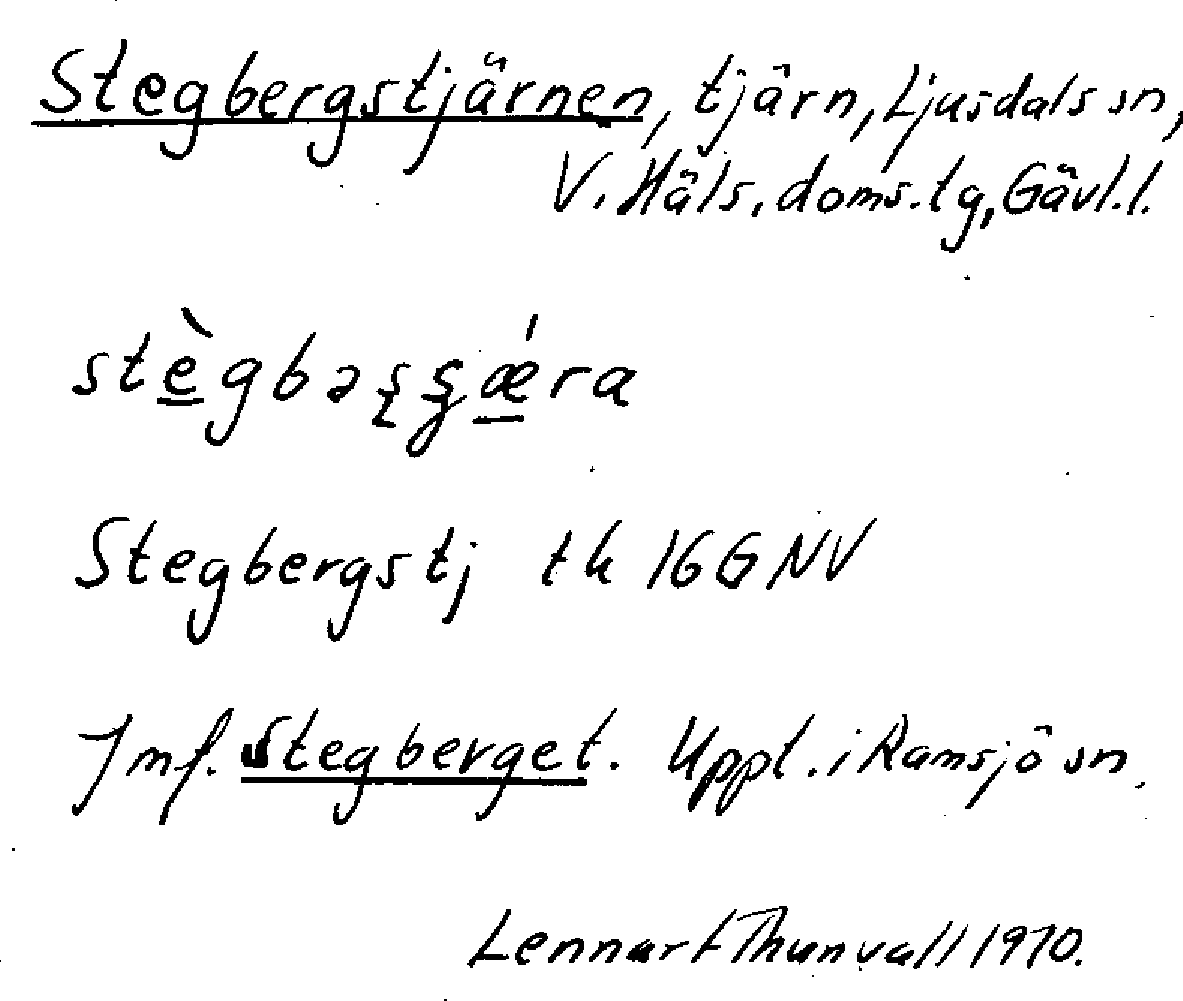 Stegbergstjärnen, tjärn, Ljusdals sn,
V. Häls. doms. tg, Gävl. l.
Stegbergstj tk 16G NV
Jmf. Stegberget. Uppt. i Ramsjö sn.
Lennart Thunvall 1970.